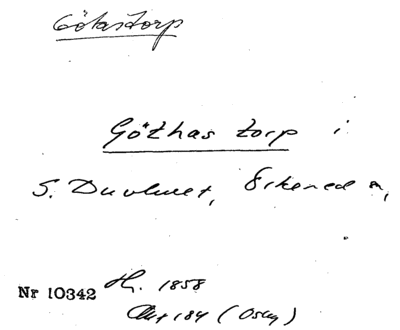 Götastorp
Göthas torp i
S. Duvhult, Erkened sn,
Nr 10342 Hr. 1858
Akt 184 (Osby)